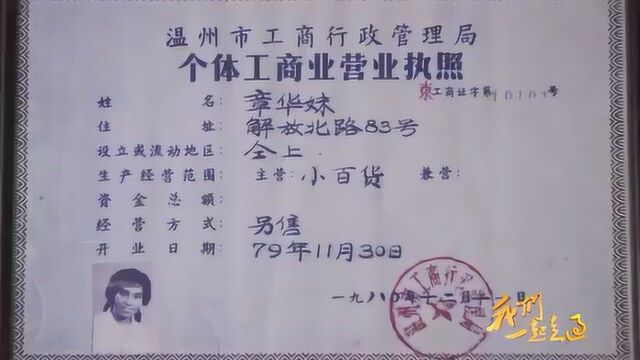 温州市工商行政管理局
个体工商业营业执照
东工商证字第10101号
姓名：章华妹
住址：解放北路83号
设立或流动地区：仝上
生产经营范围：主营：小百货 兼营：
资金总额：
经营方式：另售
开业日期：79年11月30日
一九八〇年十二月十一日
温州市工商行政管理局
我们一起走过